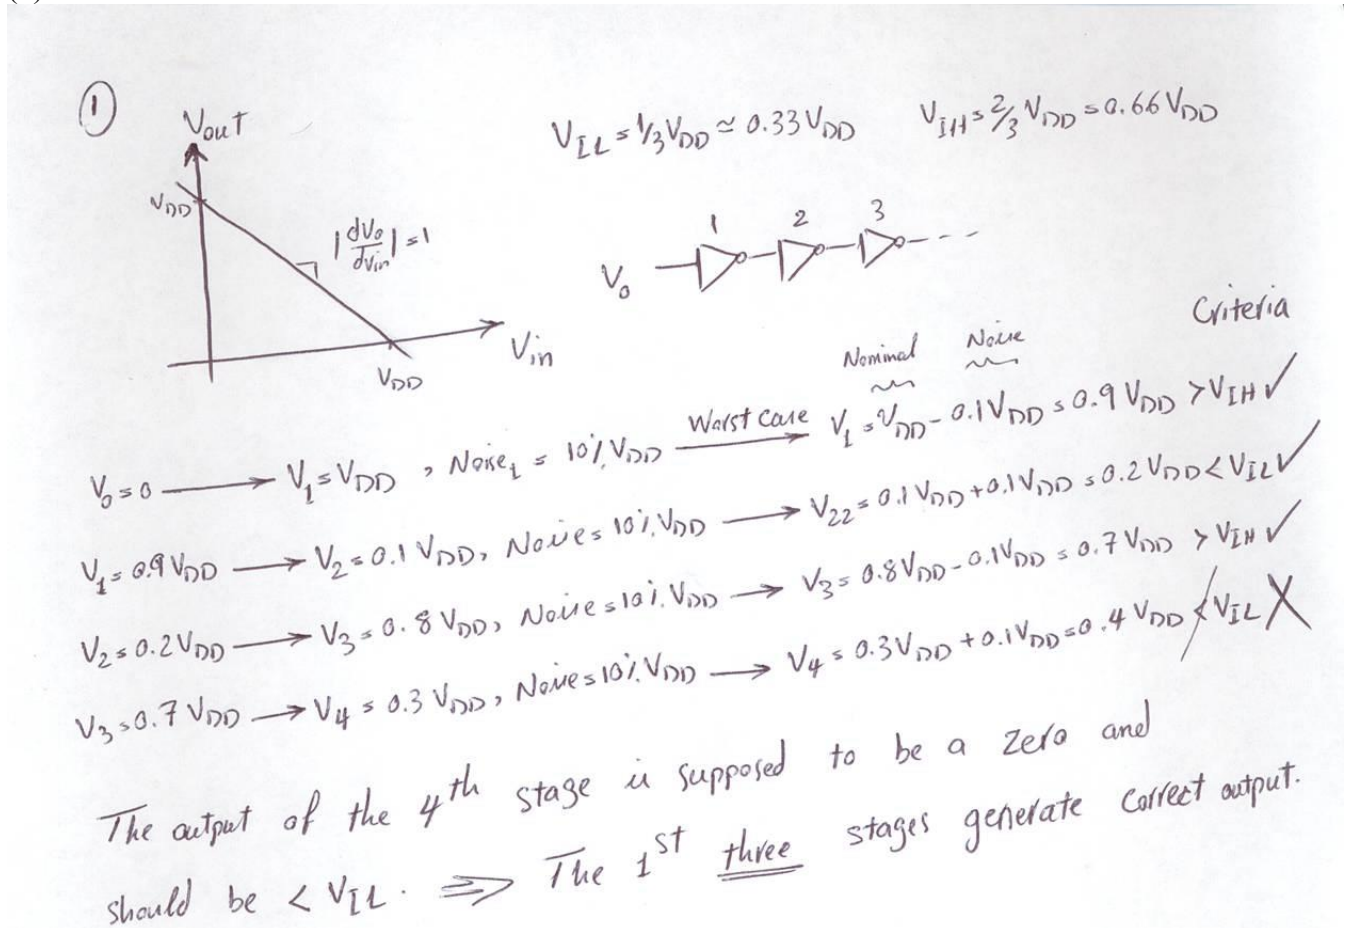 ①
Vout
VDD
|dVo/dvin| = 1
Vin
VDD
VIL = 1/3 VDD ≃ 0.33 VDD    VIH = 2/3 VDD = 0.66 VDD
1 2 3
Vo
Criteria
Nominal Noise
V0 = 0 → V1 = VDD , Noise1 = 10% VDD Worst case → V1 = VDD - 0.1VDD = 0.9 VDD > VIH ✓
V1 = 0.9 VDD → V2 = 0.1 VDD, Noise = 10% VDD → V22 = 0.1 VDD + 0.1 VDD = 0.2 VDD < VIL ✓
V2 = 0.2 VDD → V3 = 0.8 VDD, Noise = 10% VDD → V3 = 0.8 VDD - 0.1 VDD = 0.7 VDD > VIH ✓
V3 = 0.7 VDD → V4 = 0.3 VDD, Noise = 10% VDD → V4 = 0.3 VDD + 0.1 VDD = 0.4 VDD ≮ VIL X
The output of the 4th stage is supposed to be a zero and
should be < VIL. ⇒ The 1st three stages generate correct output.